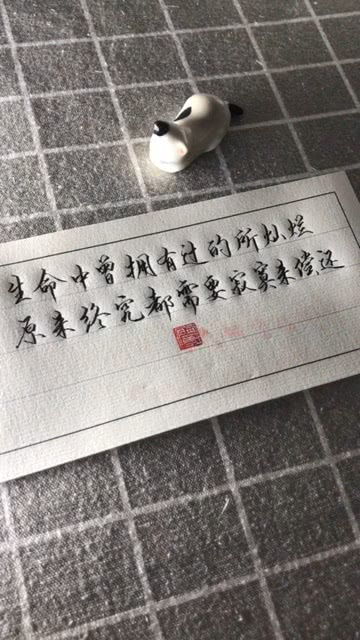 生命中曾拥有过的所灿烂
原来终究都需要寂寞来偿还